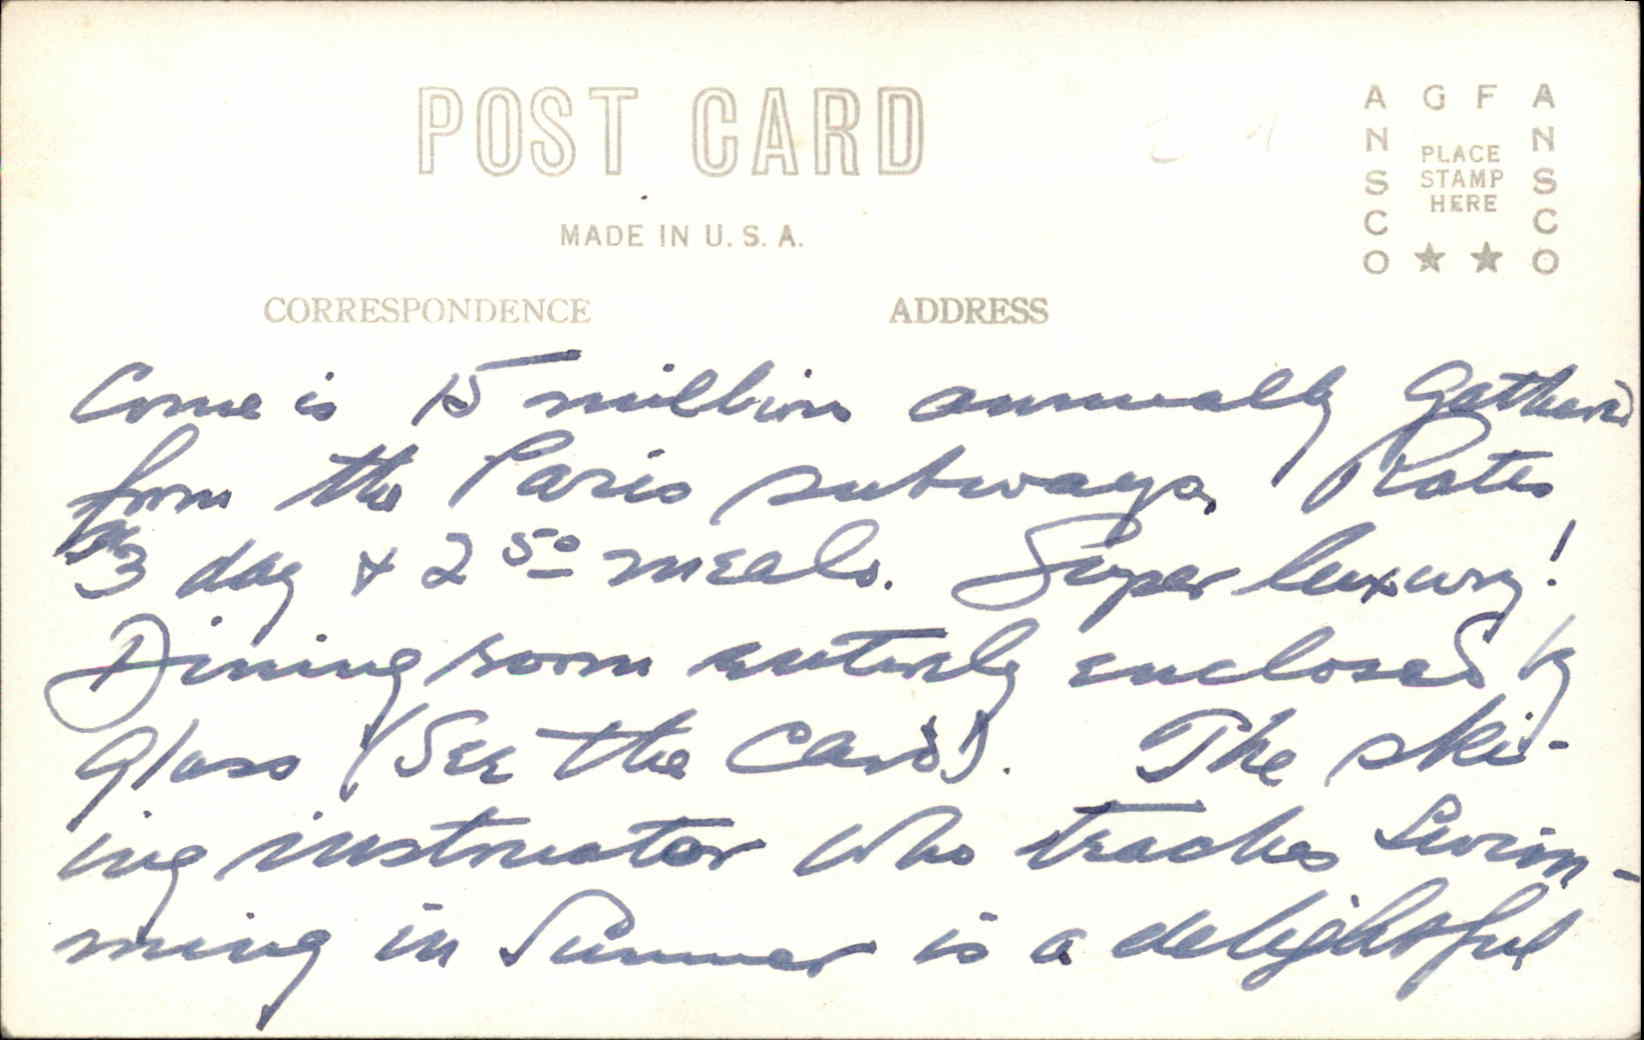 POST CARD
MADE IN U.S.A.
AGFA ANSCO ANSCO
PLACE
STAMP
HERE
CORRESPONDENCE ADDRESS
Come is 15 million annually gathered
from the Paris subways. Rates
$3 day + 2 50 meals. Super luxury!
Dining room entirely enclosed by
glass (See the Card!). The ski-
ing instructor who teaches Swim-
ming in Summer is a delightful